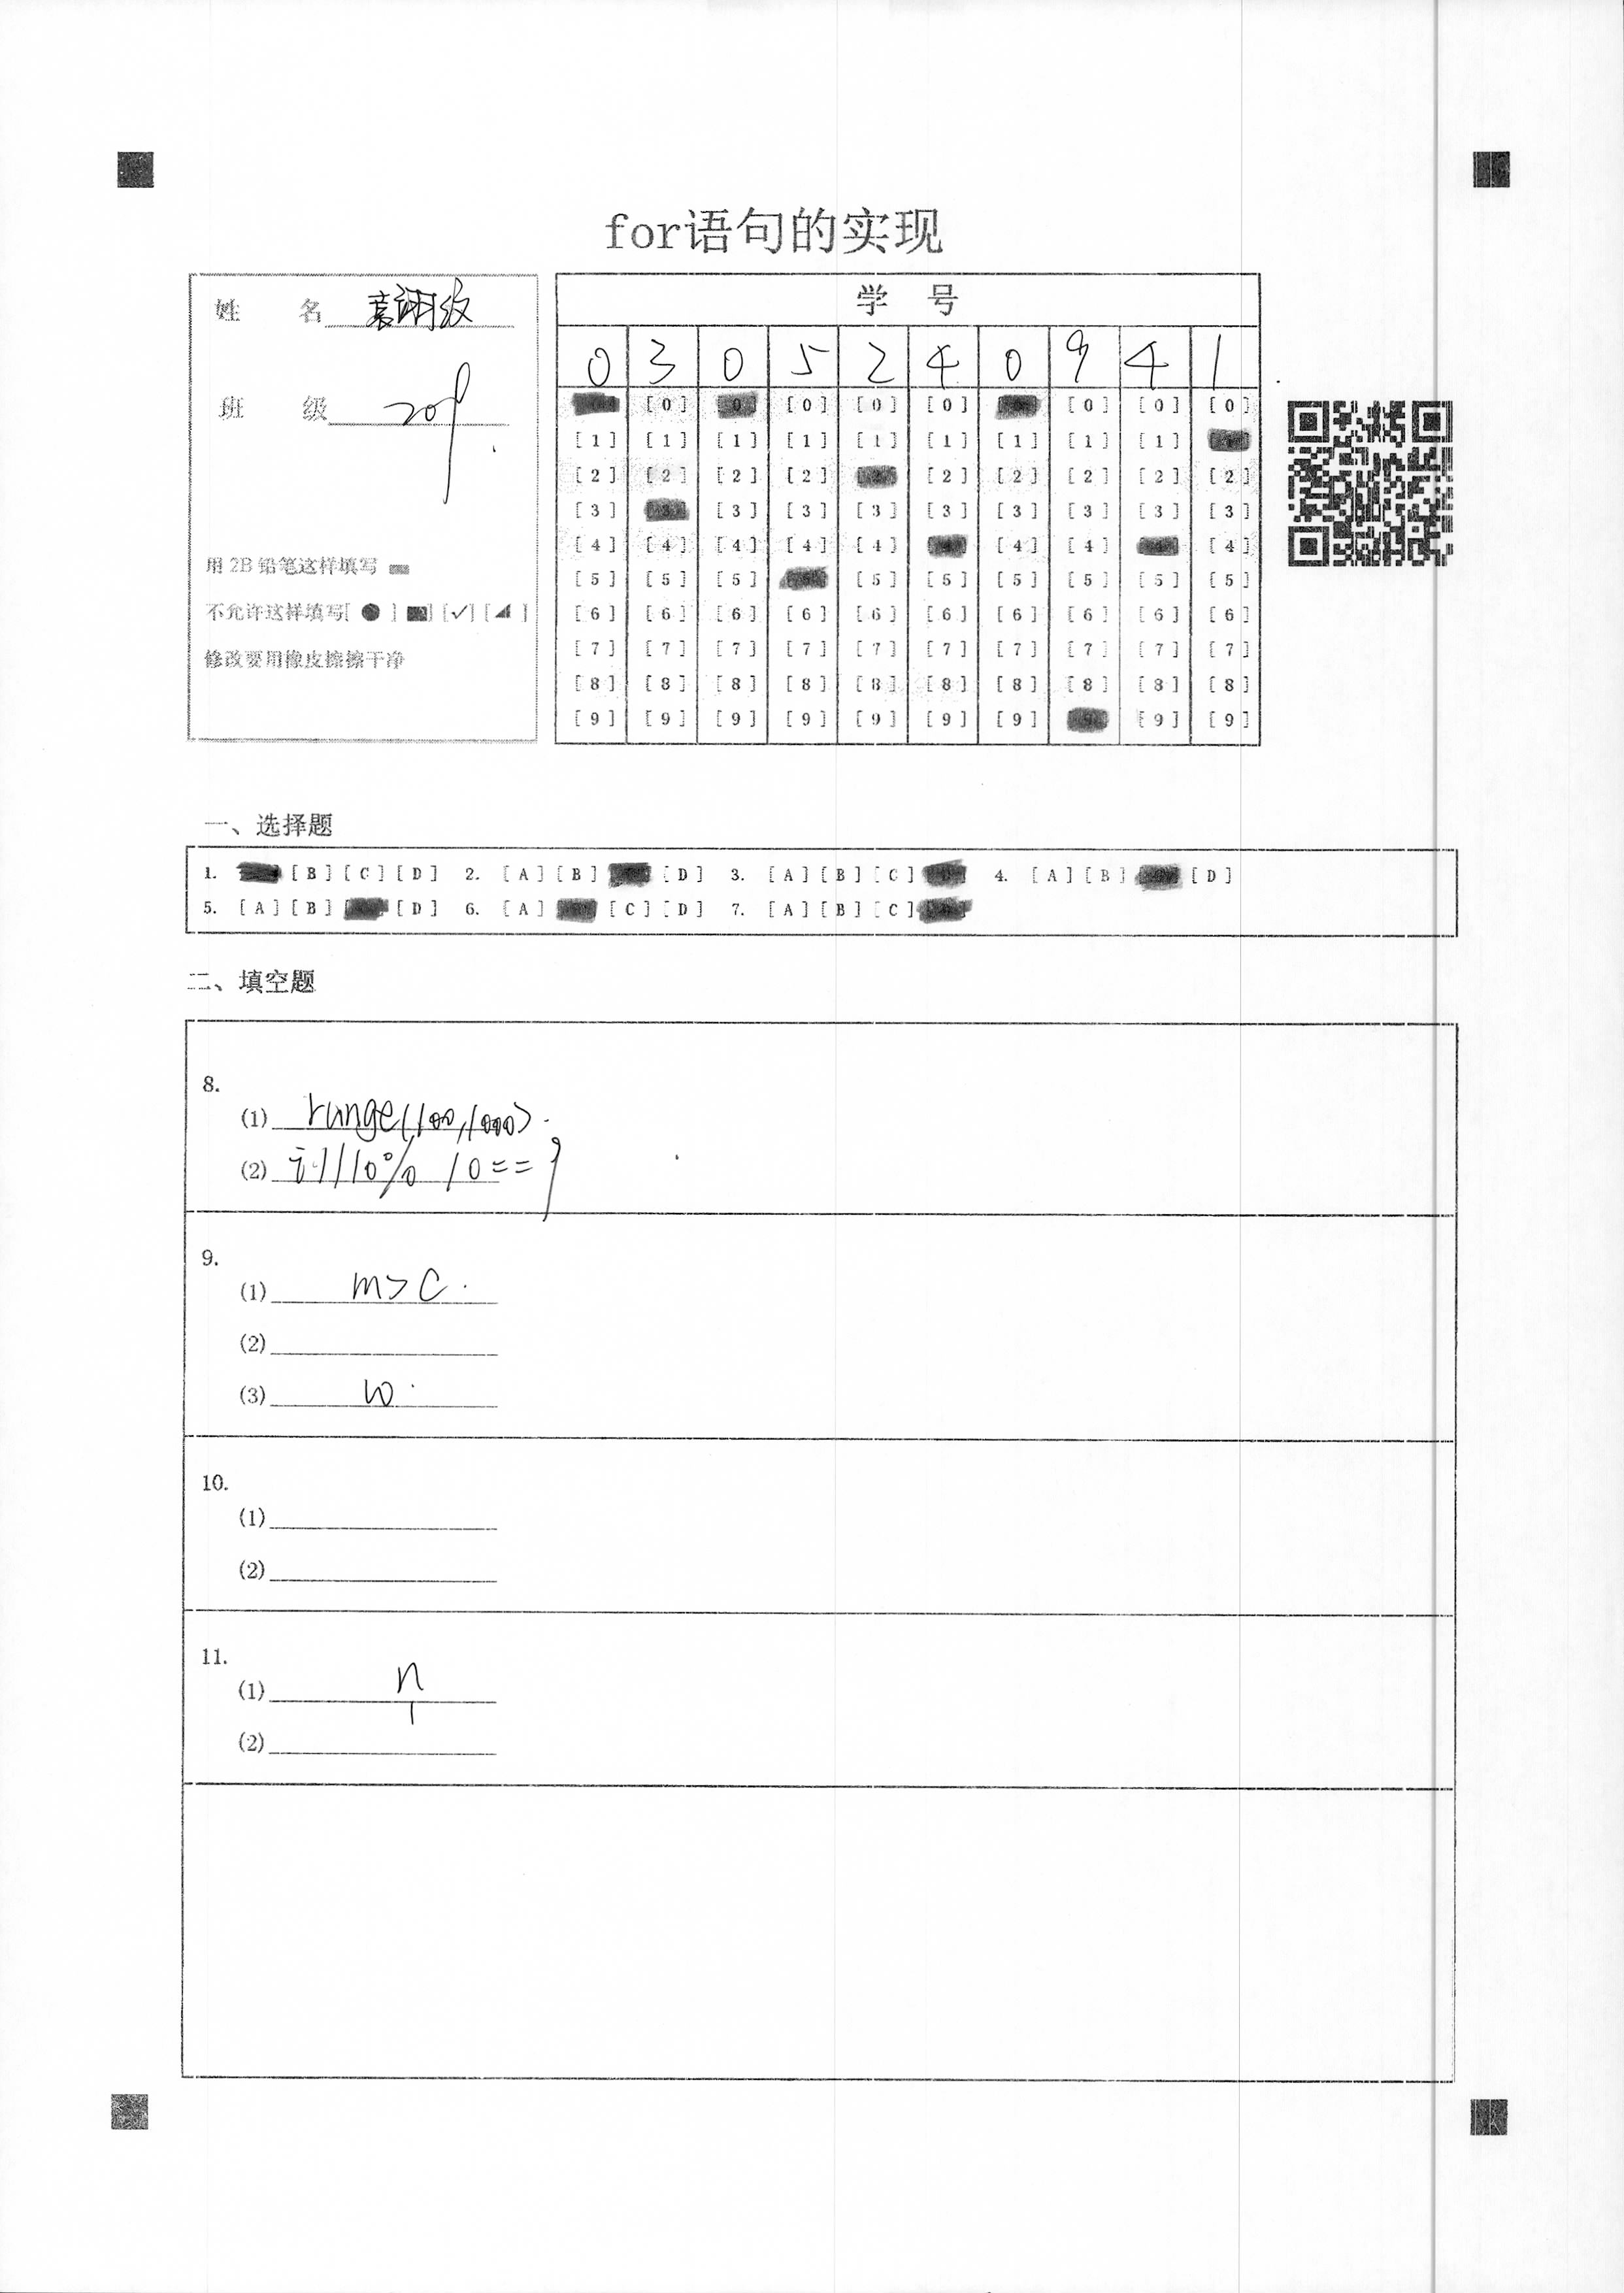 for语句的实现
姓 名 袁诩
班 级 209
用 2B 铅笔这样填写
不允许这样填写[ ● ] [✓] [ ]
修改要用橡皮擦擦干净
学 号
0 3 0 5 2 4 0 9 4 1
[0] [0] [0] [0] [0] [0] [0] [0] [0] [0]
[1] [1] [1] [1] [1] [1] [1] [1] [1] [1]
[2] [2] [2] [2] [2] [2] [2] [2] [2] [2]
[3] [3] [3] [3] [3] [3] [3] [3] [3] [3]
[4] [4] [4] [4] [4] [4] [4] [4] [4] [4]
[5] [5] [5] [5] [5] [5] [5] [5] [5] [5]
[6] [6] [6] [6] [6] [6] [6] [6] [6] [6]
[7] [7] [7] [7] [7] [7] [7] [7] [7] [7]
[8] [8] [8] [8] [8] [8] [8] [8] [8] [8]
[9] [9] [9] [9] [9] [9] [9] [9] [9] [9]
一、选择题
1. [B] [C] [D] 2. [A] [B] [D] 3. [A] [B] [C] 4. [A] [B] [D]
5. [A] [B] [D] 6. [A] [C] [D] 7. [A] [B] [C]
二、填空题
8.
(1) range(100,1000)
(2) i//10% 10==9
9.
(1) m>c
(2)
(3) w
10.
(1)
(2)
11.
(1) n
(2)